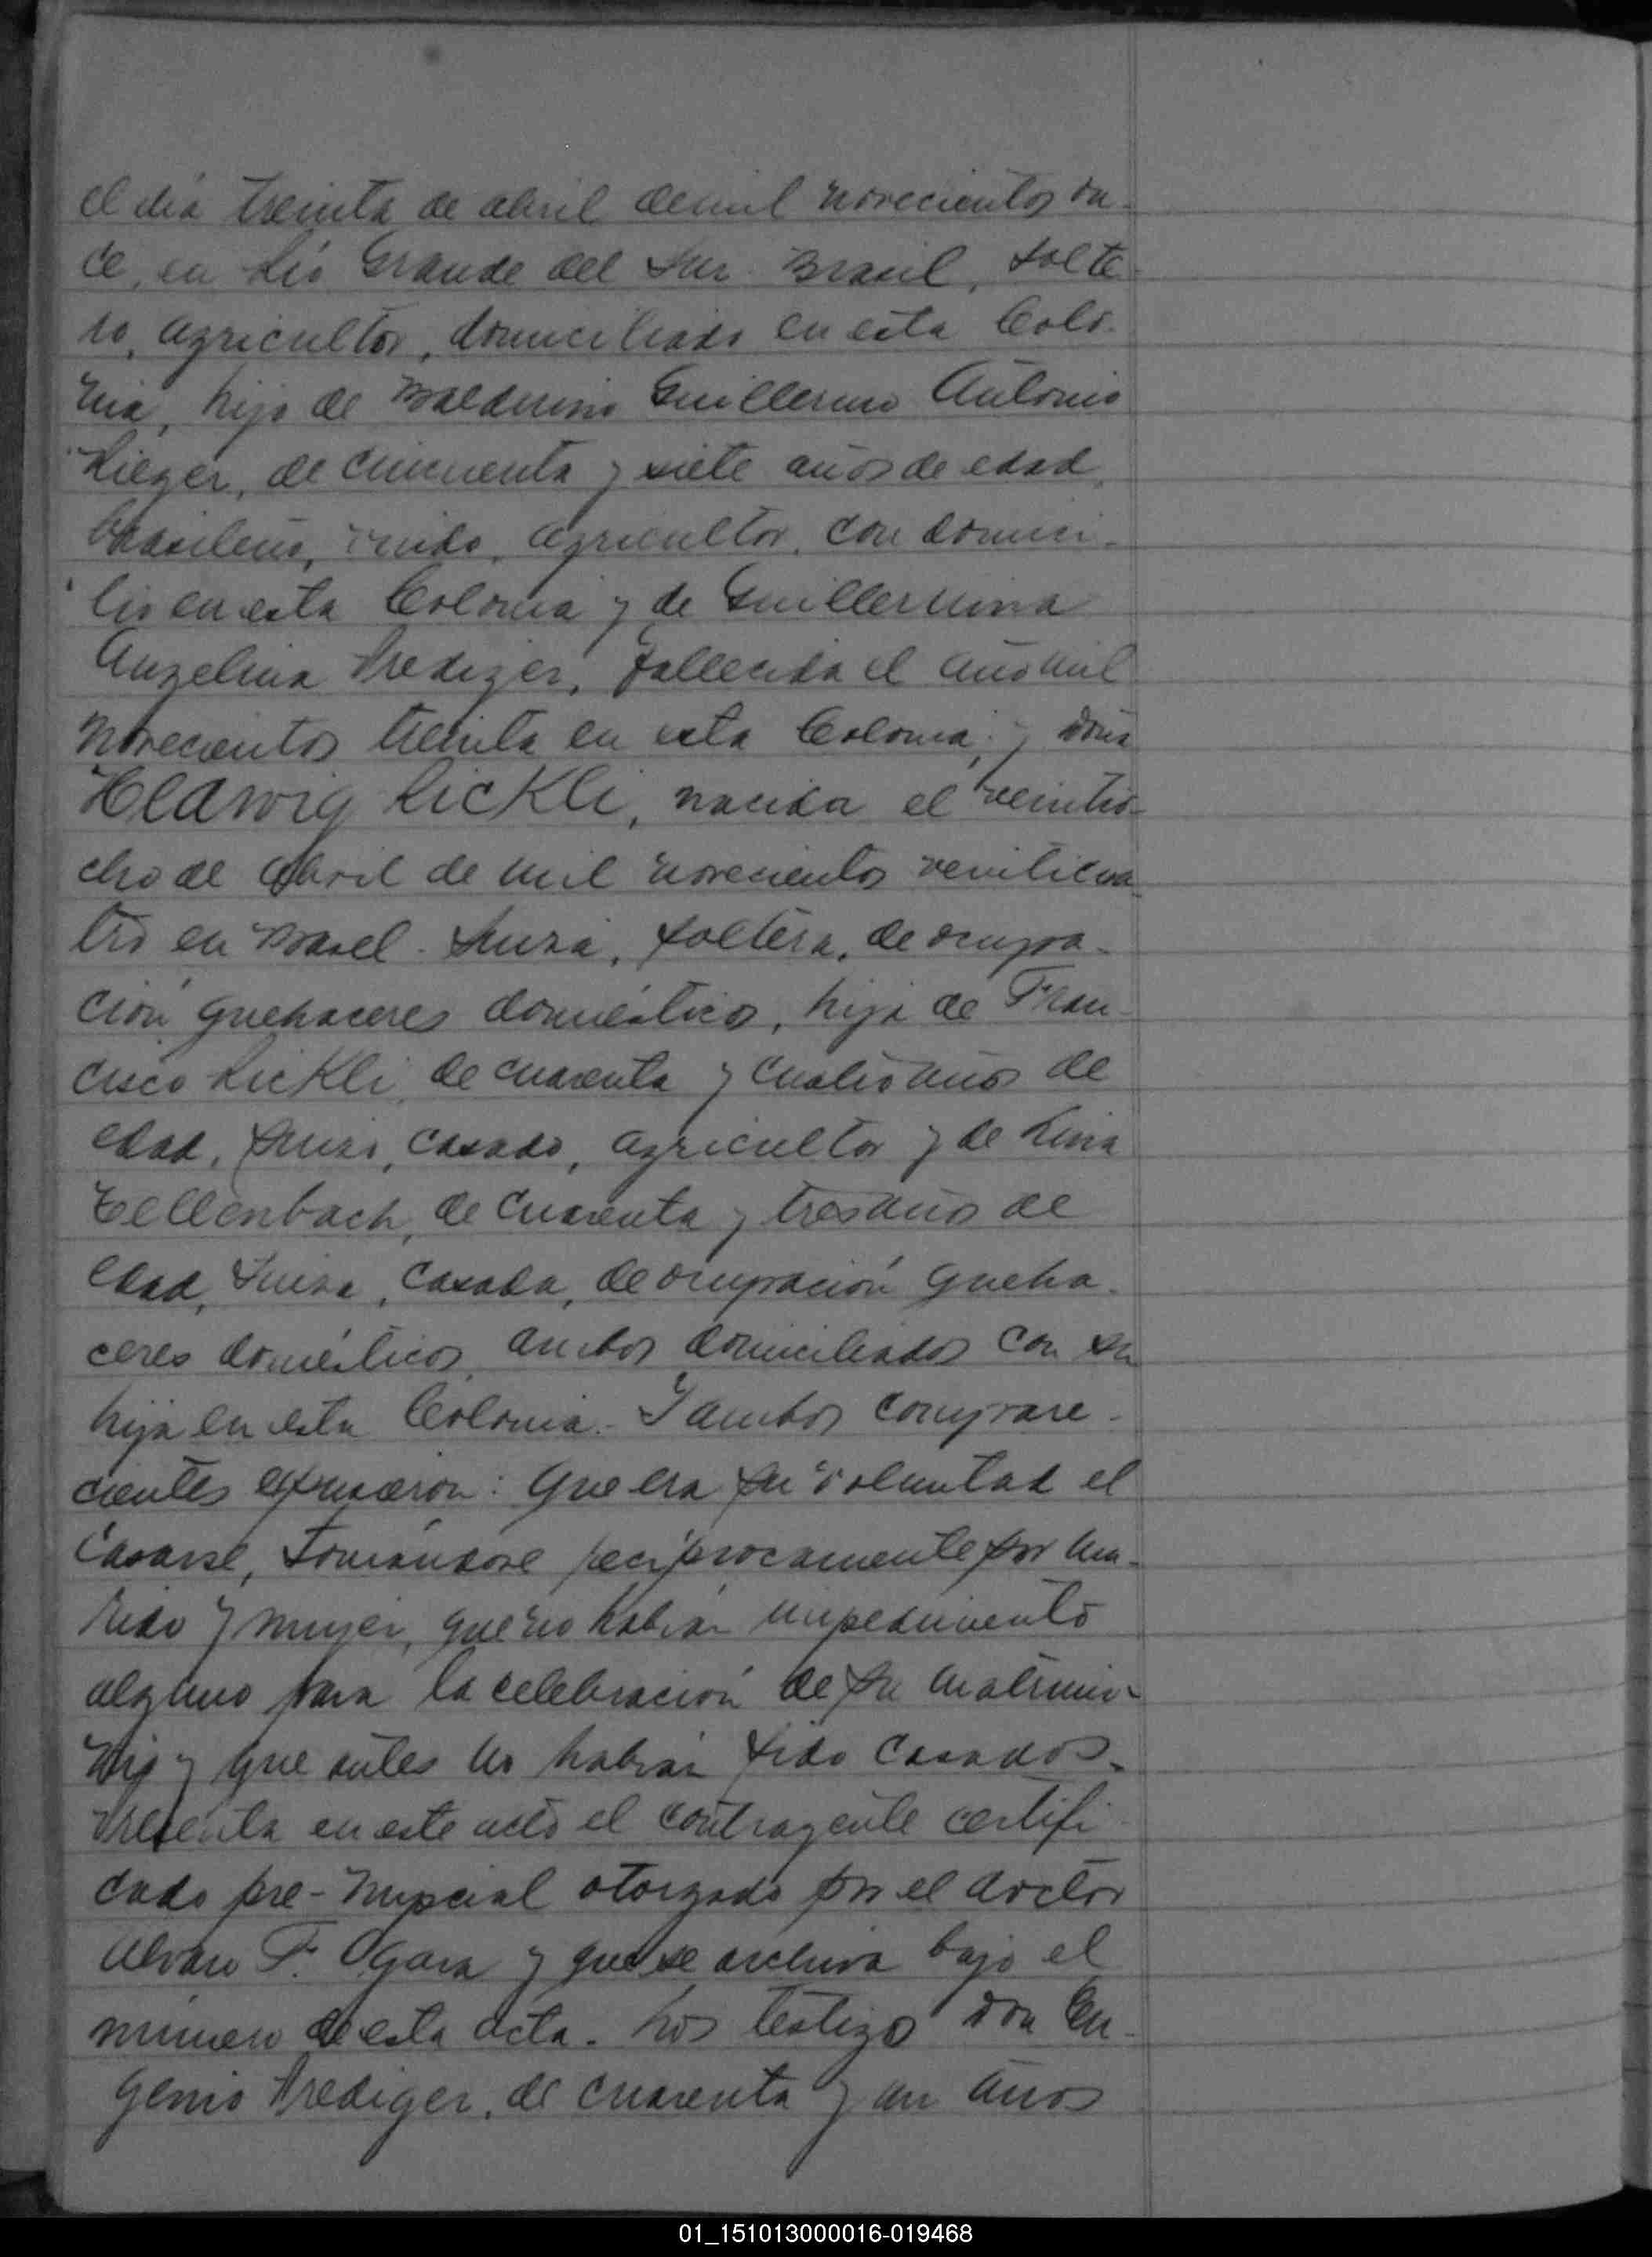 el dia treinta de abril de mil novecientos on-
ce, en Rio Grande del Sur. Brasil, solte-
ro, agricultor, domiciliado en esta Colo-
nia, hijo de Balduino Guillermo Antonio
Rieger, de cincuenta y siete años de edad,
brasileño, viudo, agricultor, con domici-
lio en esta Colonia y de Guillermina
Angelina Prediger, fallecida el año mil
novecientos treinta en esta Colonia; y doña
Hedwig Rickli, nacida el veintio-
cho de abril de mil novecientos veinticua-
tro en Basel. Suiza, soltera, de ocupa-
ción quehaceres domésticos, hija de Fran-
cisco Rickli, de cuarenta y cuatro años de
edad, suizo, casado, agricultor y de Lina
Tellenbach, de cuarenta y tres años de
edad, suiza, casada, de ocupación queha-
ceres domésticos, ambos domiciliados con su
hija en esta Colonia. Y ambos compare-
cientes expusieron: Que era su voluntad el
casarse, tomándose reciprocamente por ma-
rido y mujer, que no habían impedimento
alguno para la celebración de su matrimo-
nio y que antes no habían sido casados.
Presenta en este acto el contrayente certifi-
cado pre-nupcial otorgado por el doctor
Alvaro F. Ogara y que se archiva bajo el
número de esta acta. Los testigos don Eu-
genio Prediger, de cuarenta y un años
01_151013000016-019468